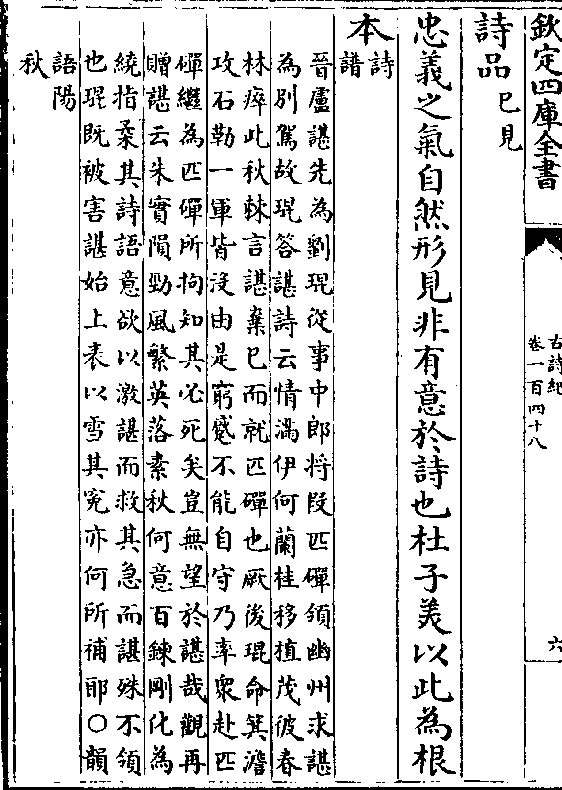 欽定四庫全書
古詩紀
卷一百四十八
六
詩品已見
忠義之氣自然形見非有意於詩也杜子美以此為根
本詩譜
晉盧諶先為劉琨從事中郎將段匹磾領幽州求諶
為别駕故琨答諶詩云情滿伊何蘭桂移植茂彼春
林瘁此秋棘言諶棄已而就匹磾也厥後琨命箕澹
攻石勒一軍皆沒由是窮蹙不能自守乃率衆赴匹
磾繼為匹磾所拘知其必死矣豈無望於諶哉觀再
贈諶云朱實隕勁風繁英落素秋何意百鍊剛化為
繞指柔其詩語意欲以激諶而救其急而諶殊不領
也琨既被害諶始上表以雪其寃亦何所補耶○韻
語陽
秋